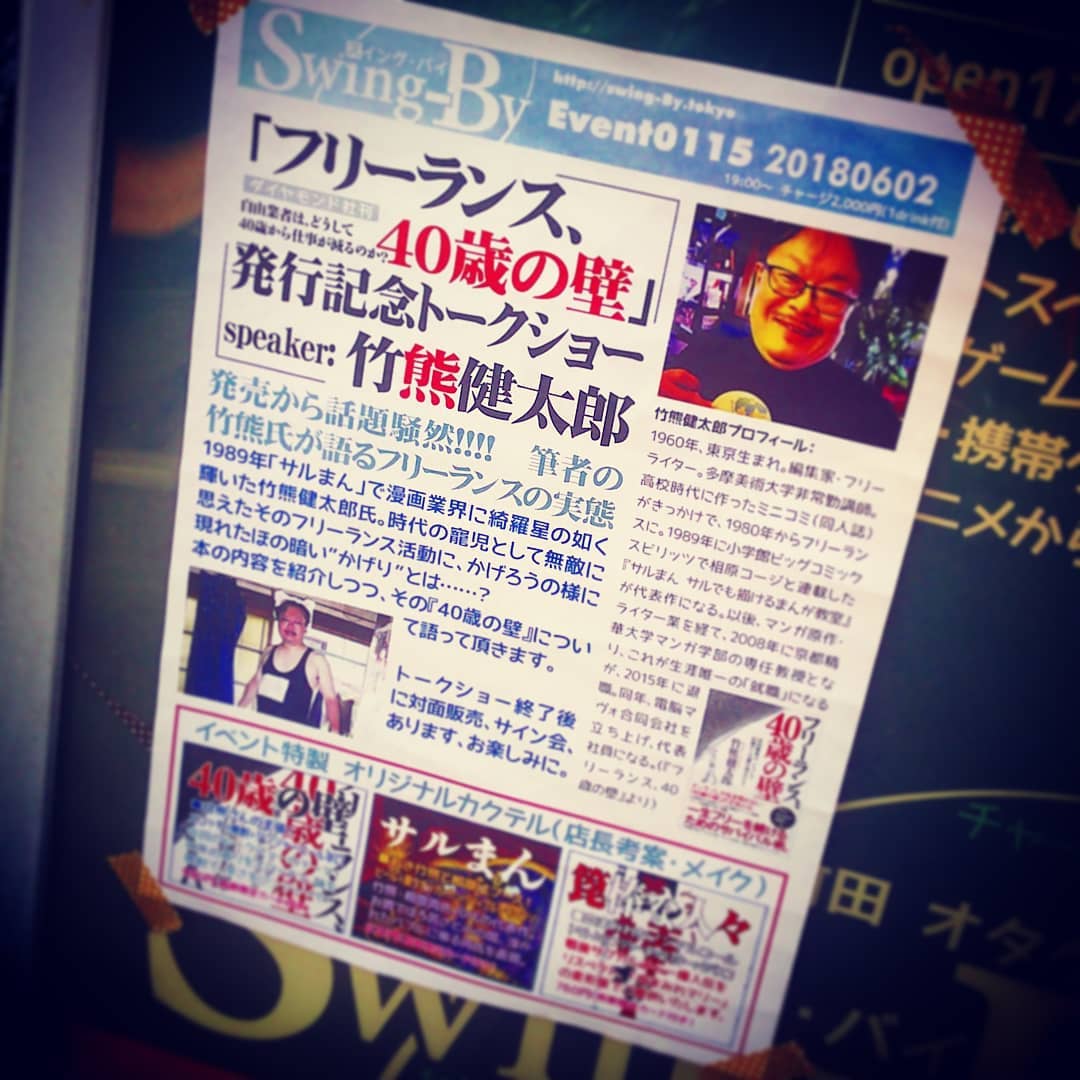 Swing-By
スイング・バイ
http://swing-By.tokyo
Event0115 20180602
19:00～ チャージ2,000円(1drink付)
「フリーランス、
ダイヤモンド社刊
自由業者は、どうして
40歳から仕事が減るのか?
40歳の壁」
発行記念トークショー
speaker: 竹熊健太郎
発売から話題騒然!!!! 筆者の
竹熊氏が語るフリーランスの実態
1989年「サルまん」で漫画業界に綺羅星の如く
輝いた竹熊健太郎氏。時代の寵児として無敵に
思えたそのフリーランス活動に、かげろうの様に
現れたほの暗い"かげり"とは……?
本の内容を紹介しつつ、その『40歳の壁』につい
て語って頂きます。
トークショー終了後
に対面販売、サイン会、
あります、お楽しみに。
竹熊健太郎プロフィール：
1960年、東京生まれ。編集家・フリー
ライター。多摩美術大学非常勤講師。
高校時代に作ったミニコミ(同人誌)
がきっかけで、1980年からフリーラン
スに。1989年に小学館ビッグコミック
スピリッツで相原コージと連載した
『サルまん サルでも描けるまんが教室』
が代表作になる。以後、マンガ原作・
ライター業を経て、2008年に京都精
華大学マンガ学部の専任教授とな
り、これが生涯唯一の「就職」になる
が、2015年に退
職。同年、電脳マ
ヴォ合同会社を
立ち上げ、代表
社員になる。(『フ
リーランス、40
歳の壁』より)
フリーランス、
40歳の壁
竹熊健太郎
イベント特製 オリジナルカクテル(店長考案・メイク)
40歳の壁
フリーランス、
40歳の壁
サルまん
open17
ースペ
ゲーム
・携帯ゲ
ニメから
チャ
町田 オタ
Swin
・バイ